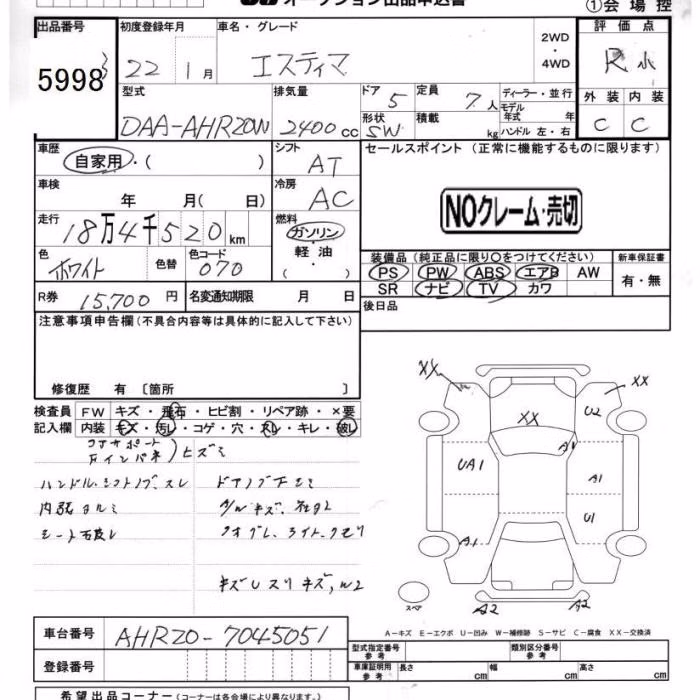 オークション出品申込書
①会場控
出品番号 初度登録年月 車名・グレード 2WD・4WD 評価点
5998 22 1月 エスティマ R
型式 排気量 ドア 定員 ディーラー・並行 外装 内装
DAA-AHR20W 2400cc 5 7人 モデル年式 年 C C
形状 積載 ハンドル 左・右
SW kg
車歴 シフト セールスポイント (正常に機能するものに限ります)
自家用・( ) AT
車検 冷房
年 月( 日) AC NOクレーム・売切
走行 燃料
18万4千520km ガソリン・軽油・
色 色替 色コード 装備品 (純正品に限り○をつけてください) 新車保証書
ホワイト 070 PS PW ABS エアB AW 有・無
R券 15,700円 名変通知期限 月 日 SR ナビ TV カワ
注意事項申告欄 (不具合内容等は具体的に記入して下さい) 後日品
修復歴 有 〔箇所 〕
検査員 FW キズ・飛石・ヒビ割・リペア跡・×要
記入欄 内装 キズ・汚レ・コゲ・穴・スレ・キレ・破レ
コアサポート
インパネ ヒズミ
ハンドル、シフトノブスレ
シート破レ
XX XX
XX U2
UA1 A1
U1
A1
スペア A2 A2
A-キズ E-エクボ U-凹み W-補修跡 S-サビ C-腐食 XX-交換済
車台番号 AHR20-7045051 型式指定番号 参考 類別区分番号 参考
登録番号 車庫証明用 参考 長さ cm 幅 cm 高さ cm
希望出品コーナー (コーナーは各会場により異なります。)